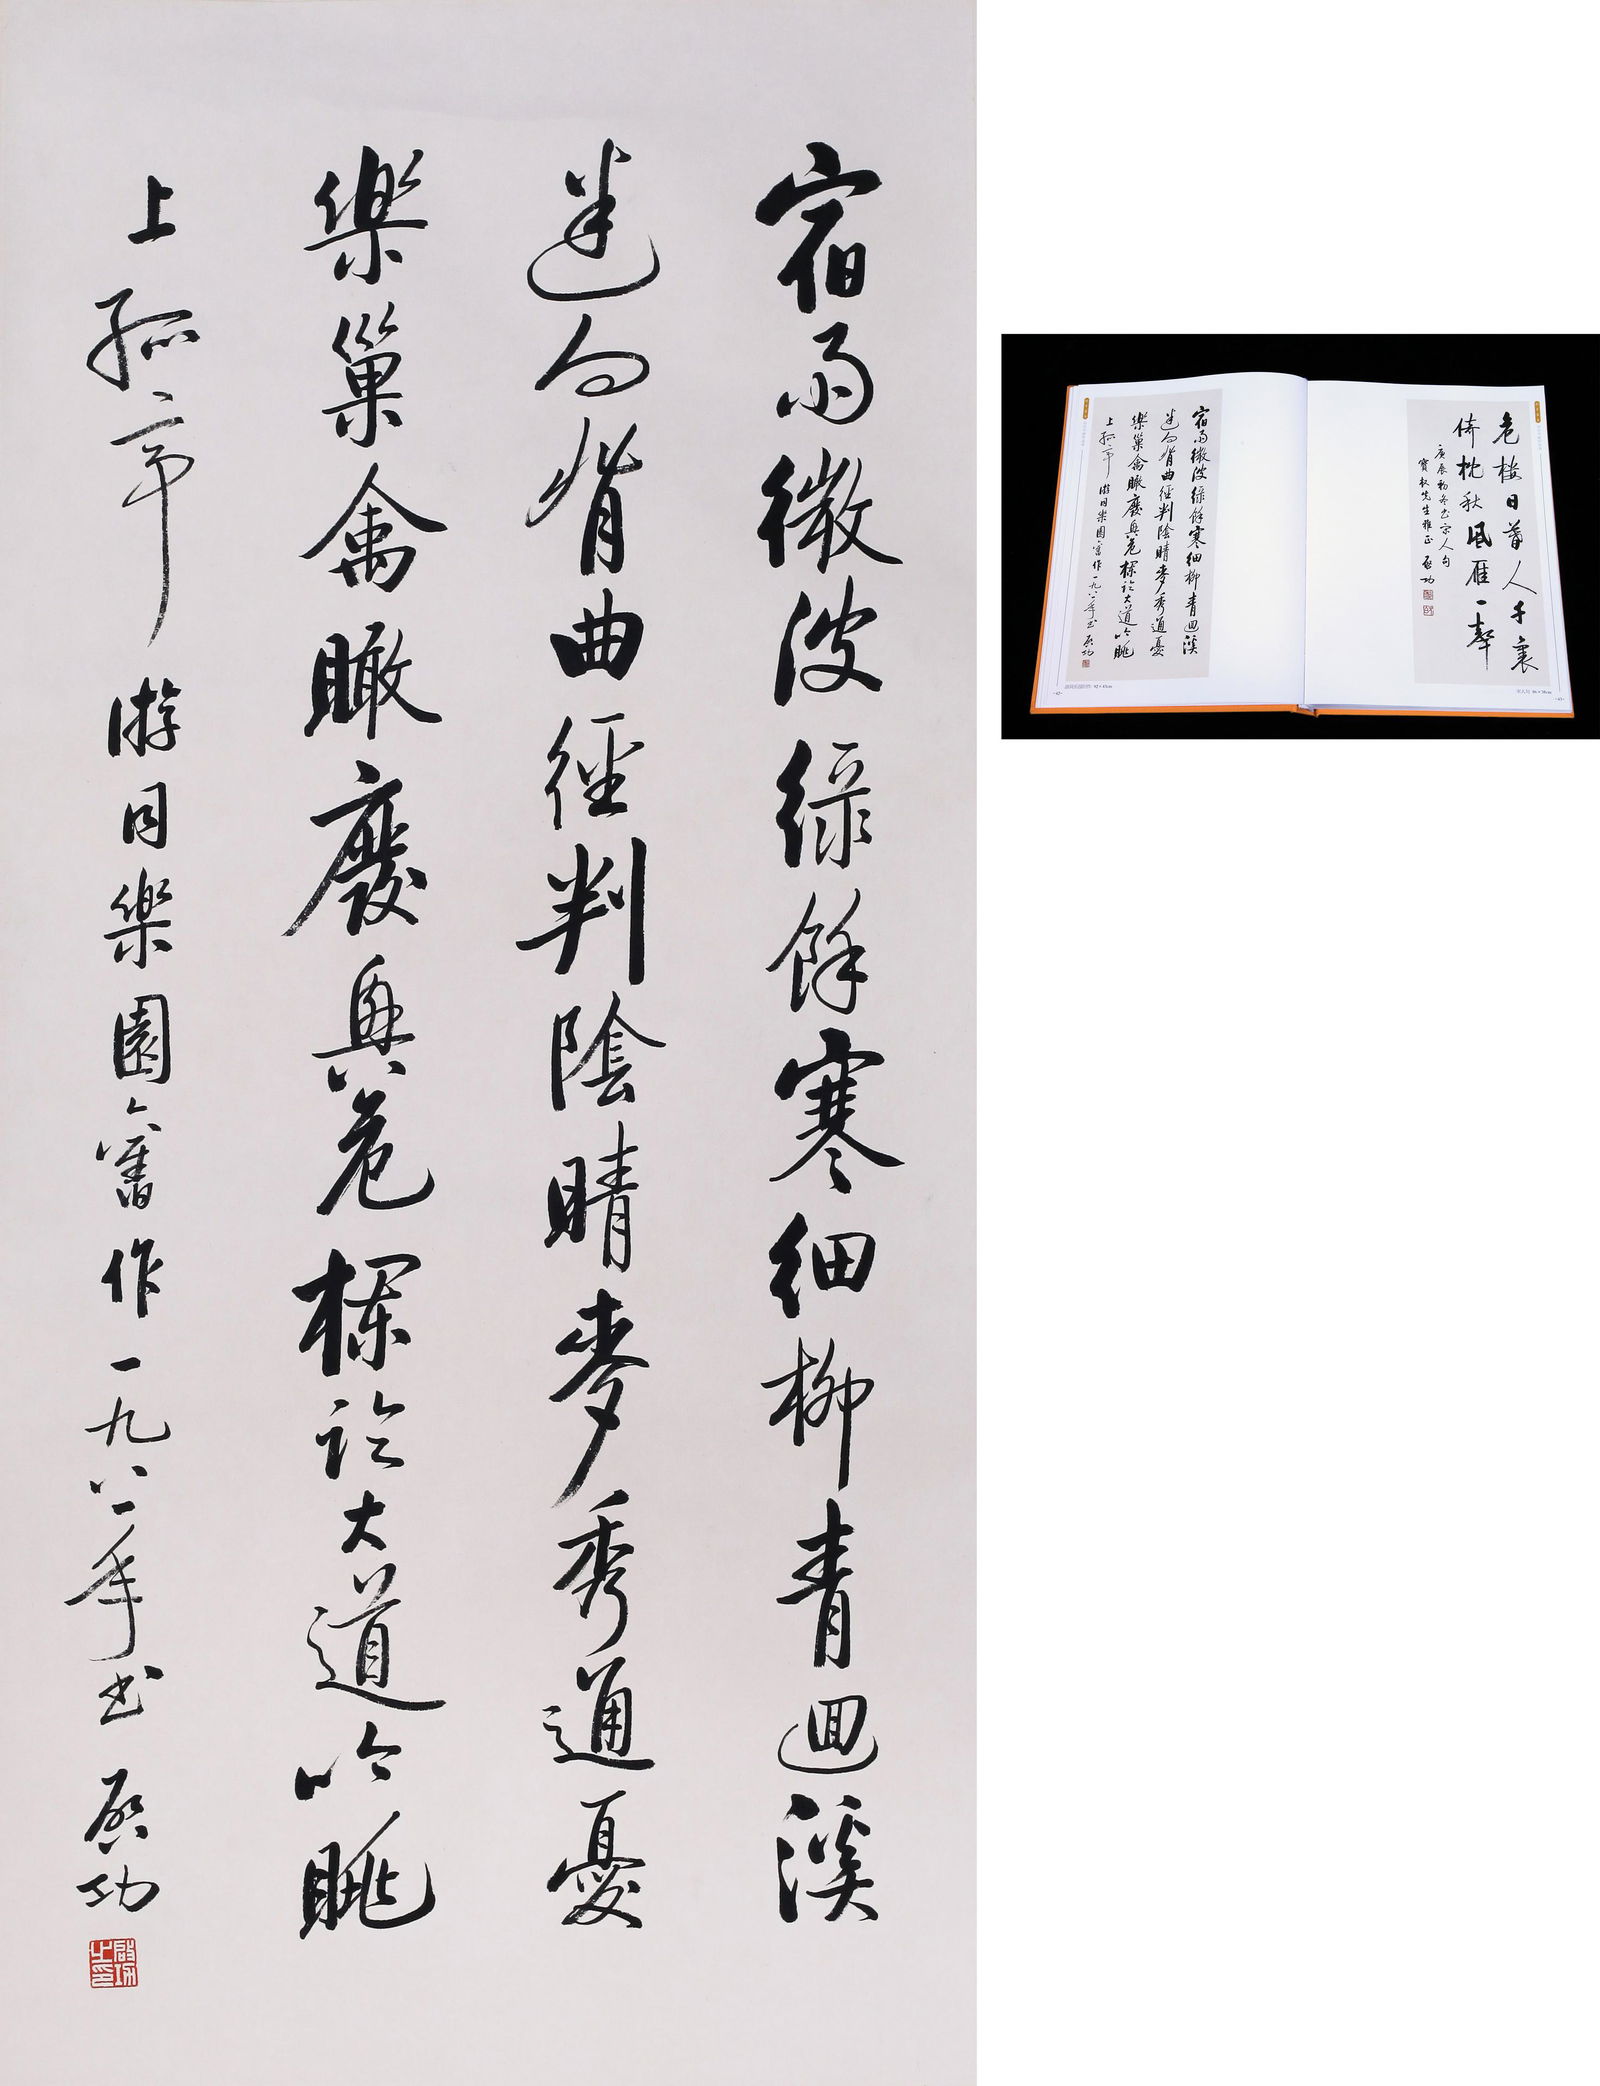 宿雨微波綠餘寒細柳青迴溪
迷向背曲徑判陰晴麥秀通憂
樂巢禽瞰廢興危欄論大道吟眺
上孤亭 游同樂園舊作一九八一年書 啟功
啟功之印
危樓日暮人千里
倚枕秋風雁一聲
庚辰初冬書宋人句
寶敘先生雅正 啟功